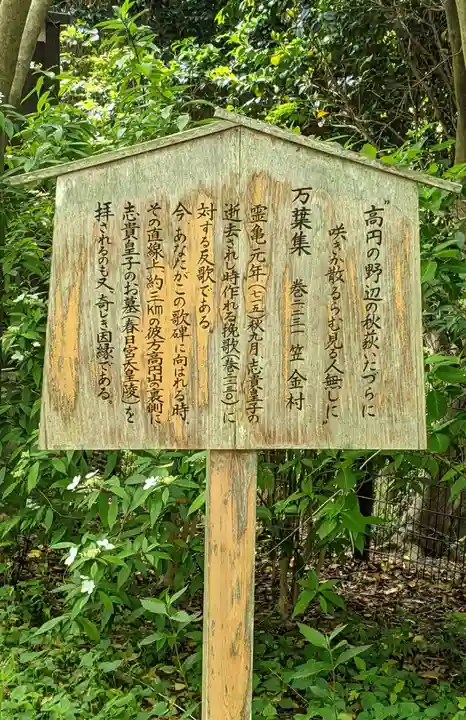 “高円の野辺の秋萩いたづらに
咲きか散るらむ見る人無しに”
万葉集 巻二 二三一 笠金村
霊亀元年(七一五)秋九月、志貴皇子の
逝去されし時作れる挽歌(巻二 二三〇)に
対する反歌である。
今、あなたがこの歌碑に向はれる時、
その直線上、約三kmの彼方高円山の裏側に
志貴皇子のお墓(春日宮天皇陵)を
拝されるのも又、奇しき因縁である。